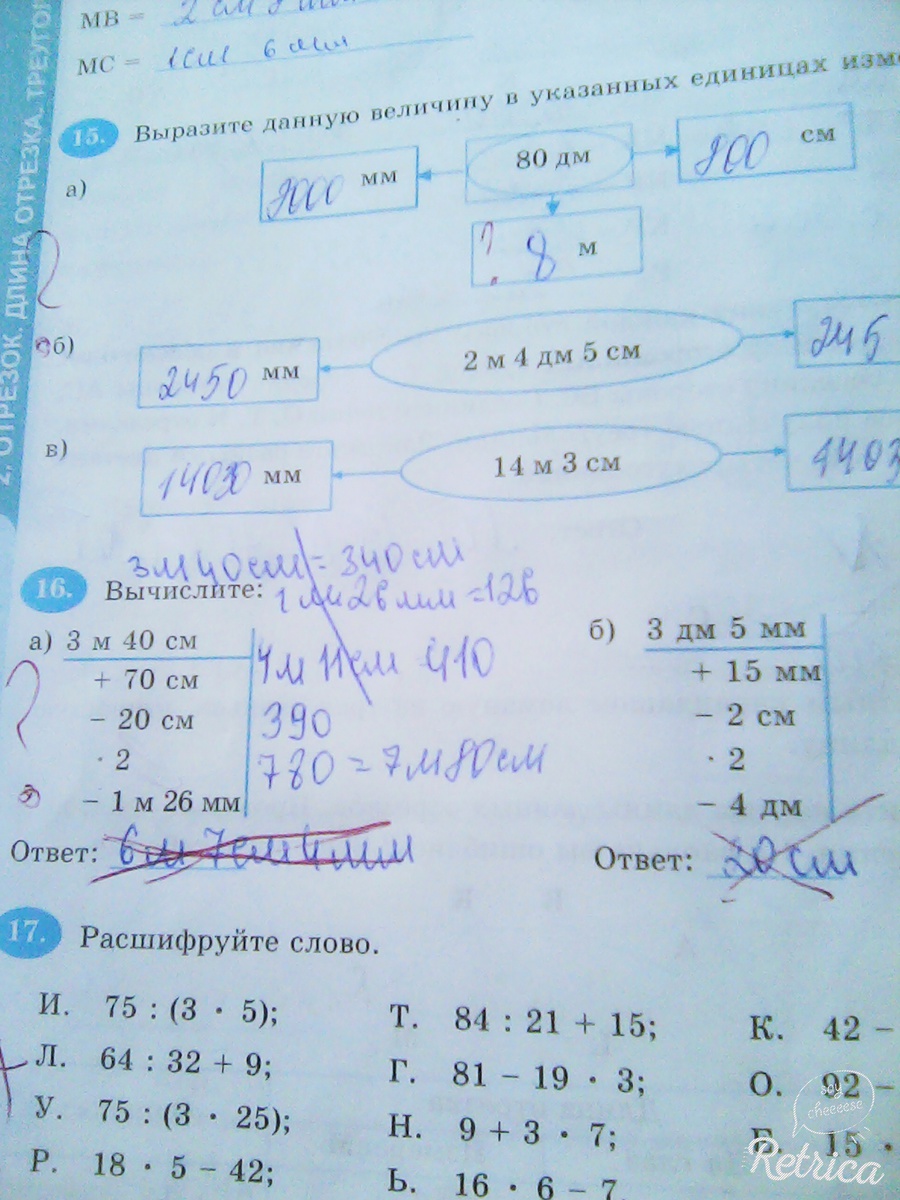 МВ = 2 см
МС = 1 см 6 мм
2. ОТРЕЗОК. ДЛИНА ОТРЕЗКА. ТРЕУГО
15. Выразите данную величину в указанных единицах изме
а) 8000 мм 80 дм 800 см
? 8 м
б) 2450 мм 2 м 4 дм 5 см 245
в) 14030 мм 14 м 3 см 1403
3м 40см = 340 см
16. Вычислите:
1м 26 мм = 126
а) 3 м 40 см
+ 70 см
− 20 см
· 2
− 1 м 26 мм
4м 11см = 410
390
780 = 7м 80см
Ответ: 6 м 7см 4мм
б) 3 дм 5 мм
+ 15 мм
− 2 см
· 2
− 4 дм
Ответ: 20 см
17. Расшифруйте слово.
И. 75 : (3 · 5);
Л. 64 : 32 + 9;
У. 75 : (3 · 25);
Р. 18 · 5 − 42;
Т. 84 : 21 + 15;
Г. 81 − 19 · 3;
Н. 9 + 3 · 7;
Ь. 16 · 6 − 7.
К. 42 −
О. 92 −
15 ·
soy cheeeese
Retrica